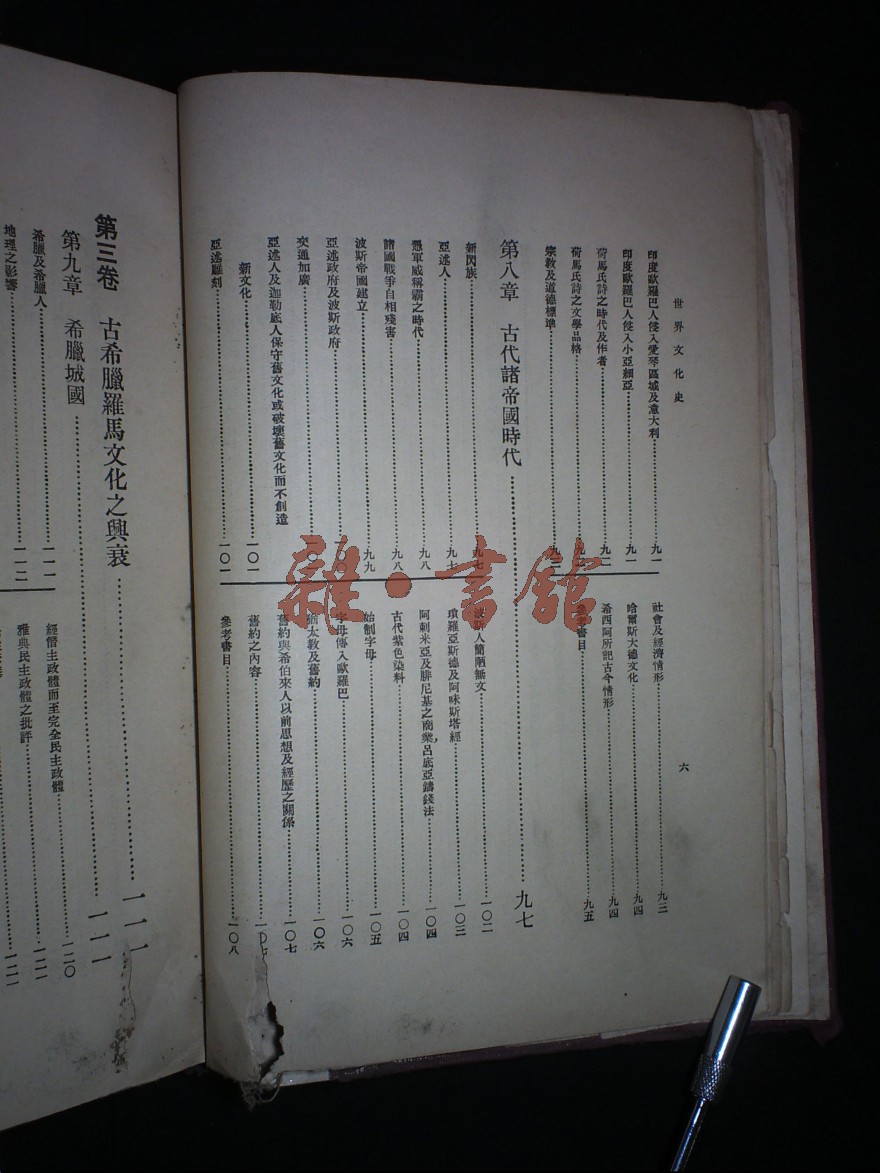 世界文化史
六
印度歐羅巴人侵入愛琴區域及意大利………九一
印度歐羅巴人侵入小亞細亞………九一
荷馬氏詩之時代及作者………九二
荷馬氏詩之文學品格………九二
宗教及道德標準………九三
社會及經濟情形………九三
哈爾斯大德文化………九四
希西阿所記古今情形………九四
參考書目………九五
第八章 古代諸帝國時代………九七
新閃族………九七
亞述人………九七
憑軍威稱霸之時代………九八
諸國戰爭自相殘害………九八
波斯帝國建立………九九
亞述政府及波斯政府………一〇〇
交通加廣………一〇一
亞述人及迦勒底人保守舊文化或破壞舊文化而不創造
新文化………一〇一
亞述雕刻………一〇一
波斯人簡陋無文………一〇二
瑣羅亞斯德及阿咊斯塔經………一〇三
阿剌米亞及腓尼基之商業，呂底亞鑄錢法………一〇四
古代紫色染料………一〇四
始制字母………一〇五
字母傳入歐羅巴………一〇六
猶太教及舊約………一〇六
舊約與希伯來人以前思想及經歷之關係………一〇七
舊約之內容………一〇七
參考書目………一〇八
第三卷 古希臘羅馬文化之興衰………一一一
第九章 希臘城國………一一一
希臘及希臘人………一一一
地理之影響………一一二
經僭主政體而至完全民主政體………一二〇
雅典民主政體之批評………一二一
雜·書館